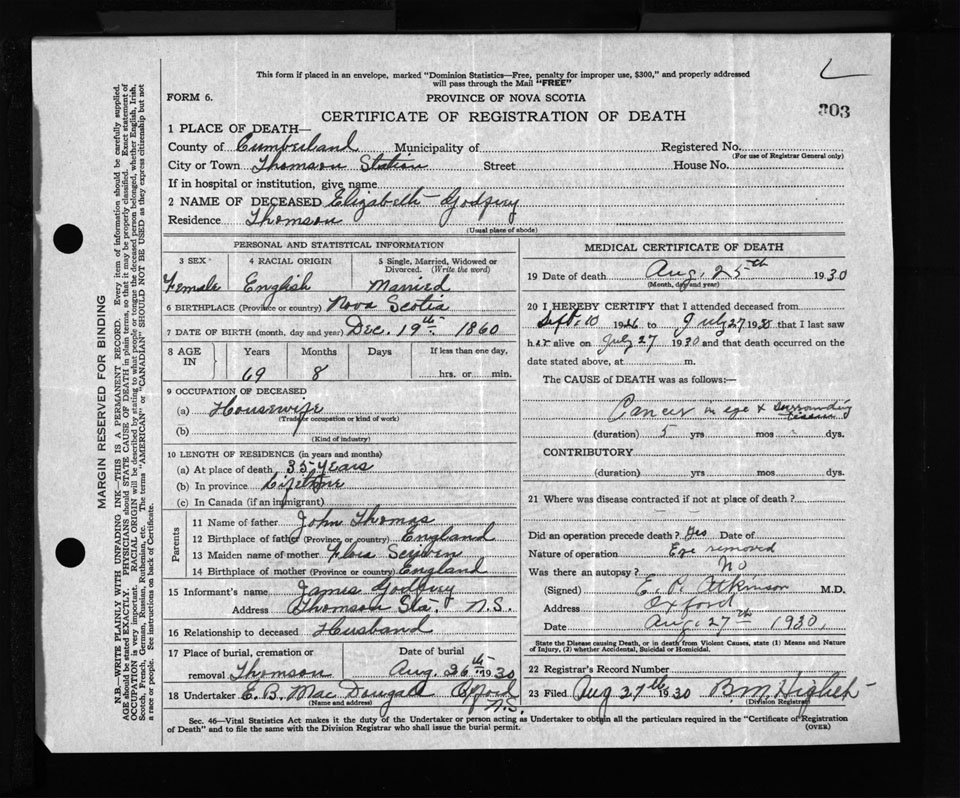 This form if placed in an envelope, marked "Dominion Statistics—Free, penalty for improper use, $300," and properly addressed
will pass through the Mail "FREE"
FORM 6.
PROVINCE OF NOVA SCOTIA
CERTIFICATE OF REGISTRATION OF DEATH
303
1 PLACE OF DEATH—
County of Cumberland Municipality of Registered No.
(For use of Registrar General only)
City or Town Thomson Station Street House No.
If in hospital or institution, give name
2 NAME OF DECEASED Elizabeth Godfrey
Residence Thomson
(Usual place of abode)
PERSONAL AND STATISTICAL INFORMATION
3 SEX 4 RACIAL ORIGIN 5 Single, Married, Widowed or
Divorced. (Write the word)
Female English Married
6 BIRTHPLACE (Province or country) Nova Scotia
7 DATE OF BIRTH (month, day and year) Dec. 19th 1860
8 AGE IN Years Months Days If less than one day,
69 8 hrs. or min.
9 OCCUPATION OF DECEASED
(a) Housewife
(Trade, occupation or kind of work)
(b)
(Kind of industry)
10 LENGTH OF RESIDENCE (in years and months)
(a) At place of death 35 years
(b) In province Lifetime
(c) In Canada (if an immigrant)
Parents
11 Name of father John Thomas
12 Birthplace of father (Province or country) England
13 Maiden name of mother
14 Birthplace of mother (Province or country) England
15 Informant's name James Godfrey
Address Thomson Sta. N.S.
16 Relationship to deceased Husband
17 Place of burial, cremation or Date of burial
removal Thomson Aug. 26th 1930
18 Undertaker E. B. MacDougall Oxford N.S.
(Name and address)
MEDICAL CERTIFICATE OF DEATH
19 Date of death Aug. 25th 1930
(Month, day and year)
20 I HEREBY CERTIFY that I attended deceased from
Sept. 10 1926 to July 27 1930 that I last saw
her alive on July 27 1930 and that death occurred on the
date stated above, at m.
The CAUSE of DEATH was as follows:—
Cancer in eye & surrounding tissue
(duration) 5 yrs mos dys.
CONTRIBUTORY
(duration) yrs mos dys.
21 Where was disease contracted if not at place of death?
Did an operation precede death? Yes Date of
Nature of operation Eye removed
Was there an autopsy? No
(Signed) E. P. Atkinson M.D.
Address Oxford
Date Aug. 27th 1930
State the Disease causing Death, or in death from Violent Causes, state (1) Means and Nature
of Injury, (2) whether Accidental, Suicidal or Homicidal.
22 Registrar's Record Number
23 Filed Aug 27th 1930 B.M.
(Division Registrar)
Sec. 46—Vital Statistics Act makes it the duty of the Undertaker or person acting as Undertaker to obtain all the particulars required in the "Certificate of Registration
of Death" and to file the same with the Division Registrar who shall issue the burial permit.
(OVER)
MARGIN RESERVED FOR BINDING
N.B.—WRITE PLAINLY WITH UNFADING INK—THIS IS A PERMANENT RECORD. Every item of information should be carefully supplied.
AGE should be stated EXACTLY. PHYSICIANS should STATE CAUSE OF DEATH in plain terms, so that it may be properly classified. Exact statement of
OCCUPATION is very important. RACIAL ORIGIN will be described by stating to what people or tongue the deceased person belonged, whether English, Irish,
Scotch, French, German, Russian, Ruthenian, etc. The terms "AMERICAN" or "CANADIAN" SHOULD NOT BE USED as they express citizenship but not
a race or people. See instructions on back of Certificate.